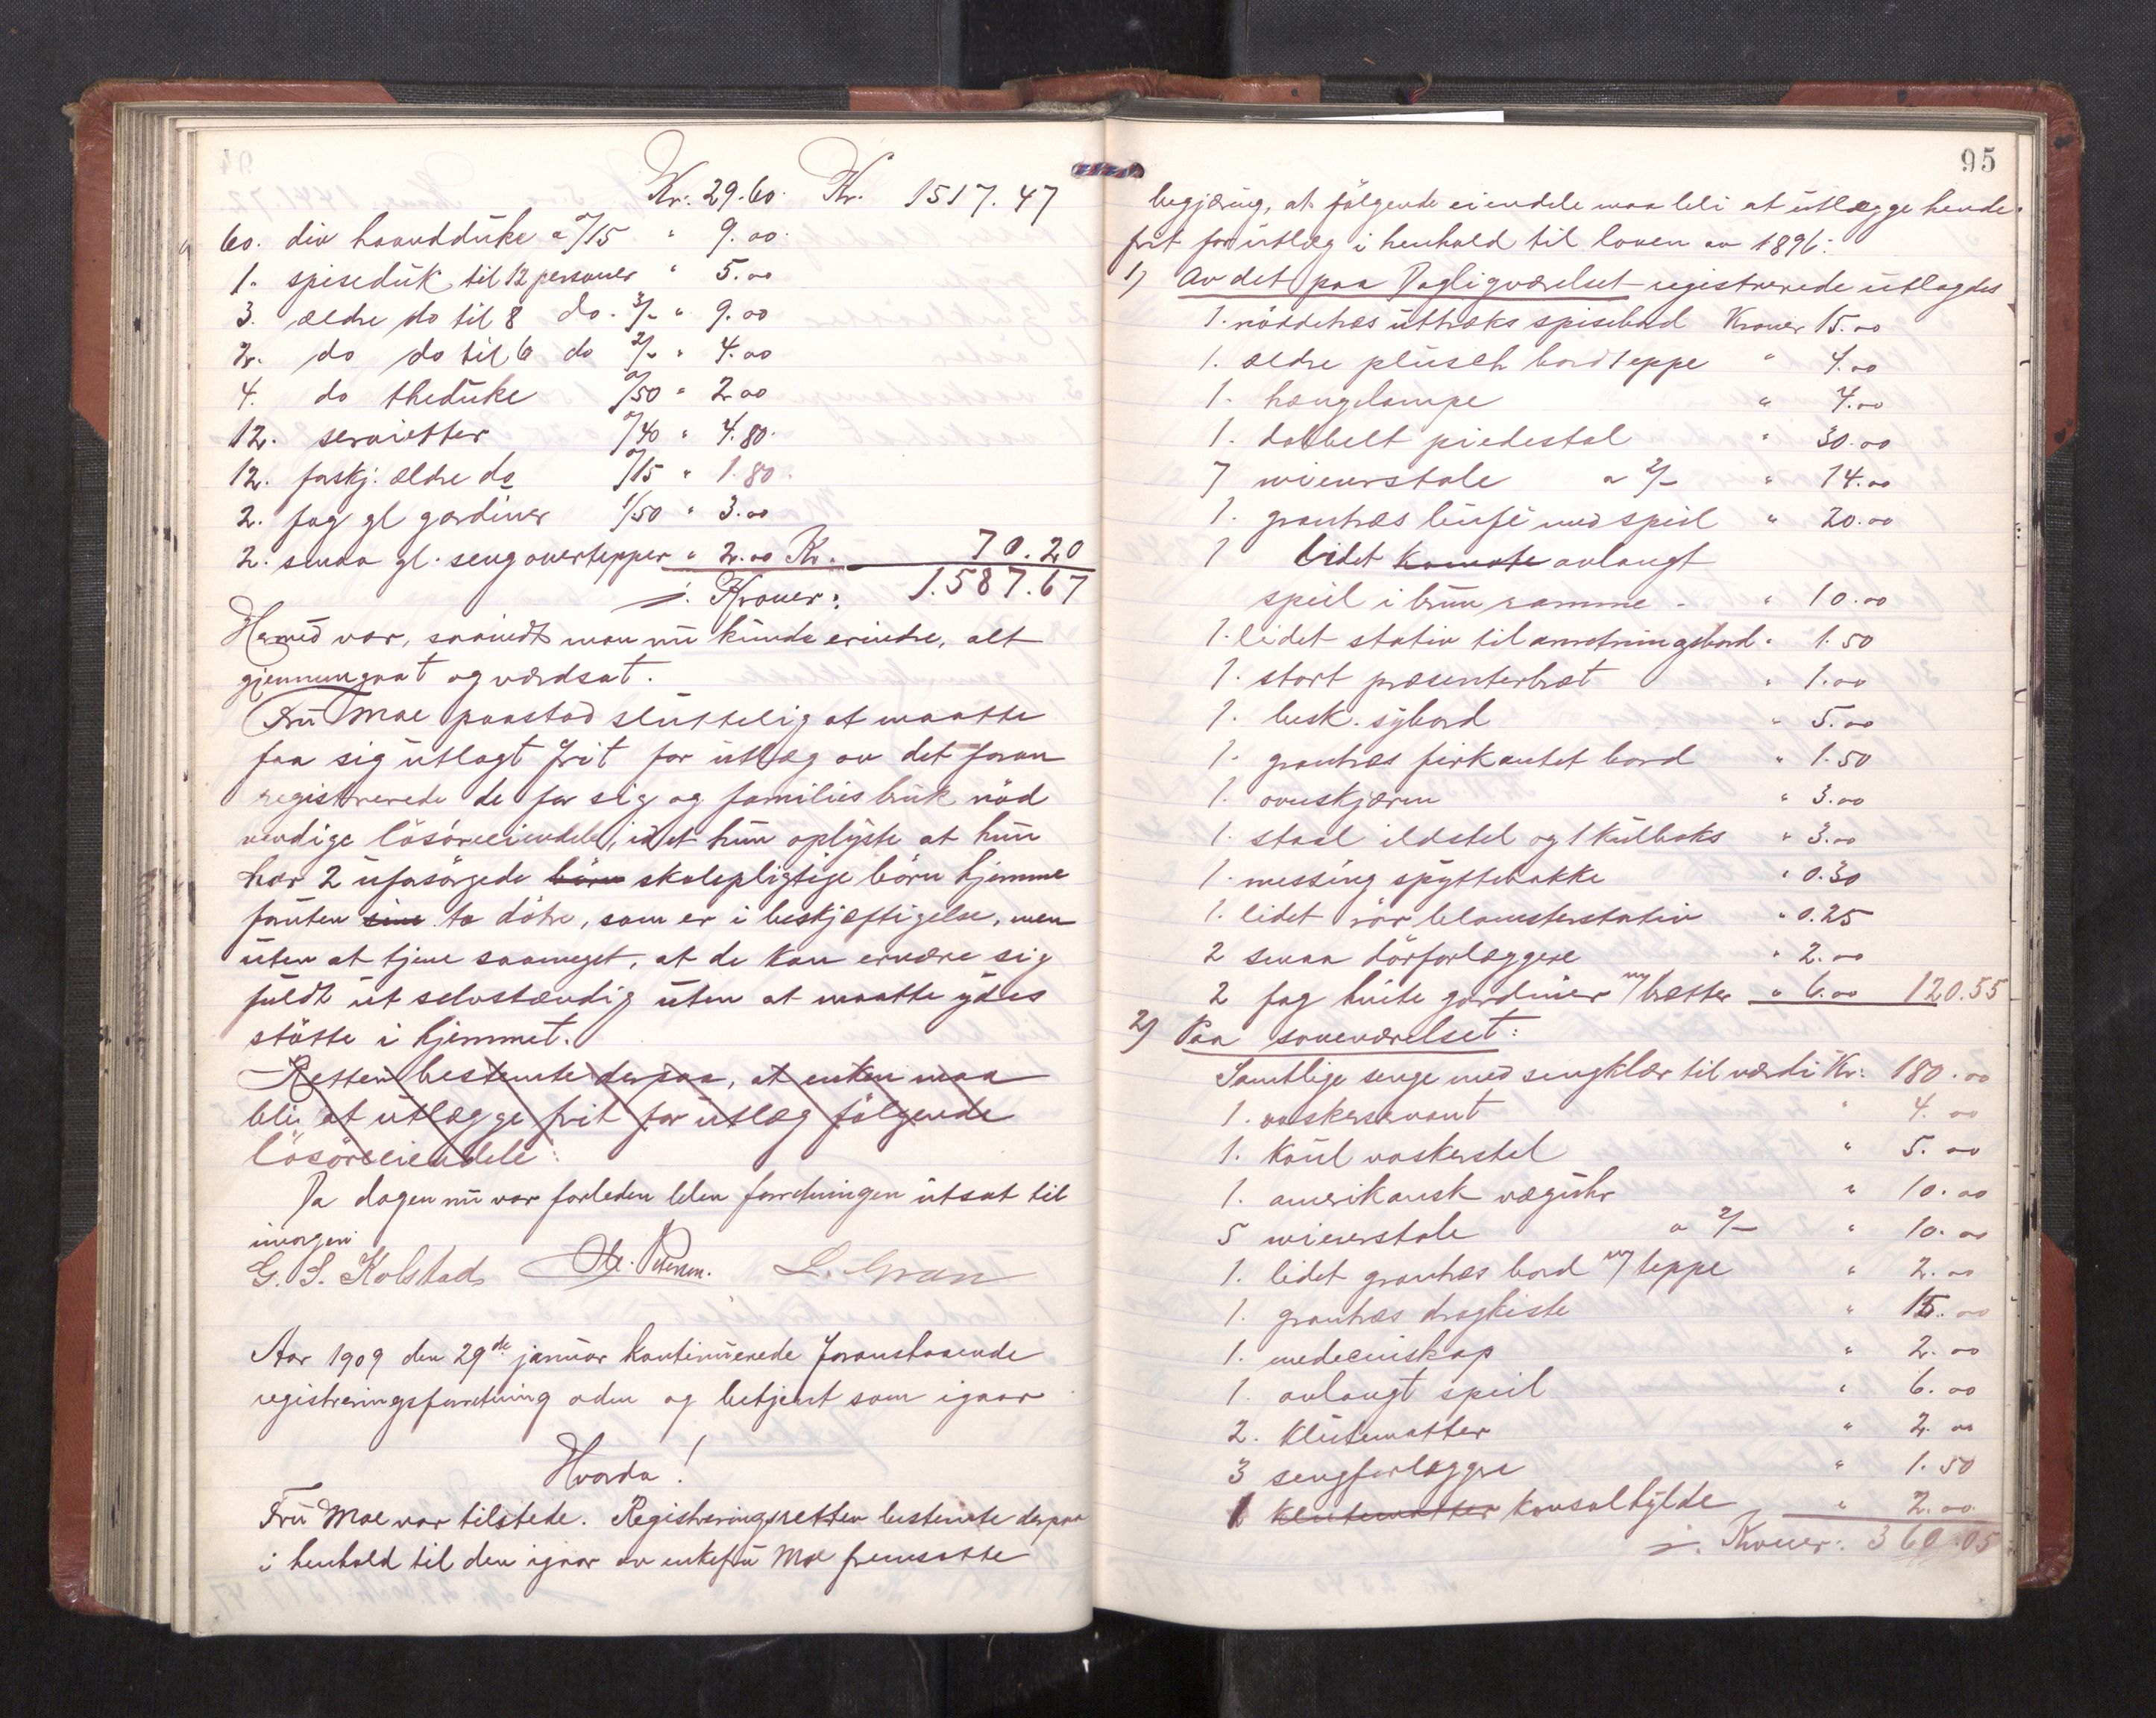 Kr. 29.60. Kr. 1517.47
60. div haandduke a /15 " 9.00.
1. spisedük til 12 personer " 5.00
3. ældre do til 8 do. 3/- " 9.00
2. do do til 6 do 2/- " 4.00
4. do theduke /50 " 2.00
12. servietter /40 " 4.80.
12. forskj. ældre do /15 " 1.80.
2. fag gl gardiner 1/50 " 3.00
2. smaa gl. sengovertepper " 2.00 Kr. 70.20
Kroner: 1.587.67
Hermed var, saavidt man nu kunde erindre, alt
gjennemgaat og værdsat.
Fru Moe paastod sluttelig at maatte
faa sig utlagt frit for utlæg av det foran
registrerede de for sig og families bruk nöd
vendige lösöreeiendele, idet hun oplyste at hun
har 2 uforsörgede börn skolepligtige börn hjemme
foruten sine to dötre, som er i beskjæftigelse, men
uten at tjene saameget, at de kan ernære sig
fuldt ut selvstændig uten at maatte ydes
stötte i hjemmet.
Retten bestemte derpaa, at enken maa
bli at utlægge frit for utlæg fölgende
lösöreeiendele:
Da dagen nu var forleden blev forretningen utsat til
imorgen.
G. S. Kolstad Petersen. L. Gran
Aar 1909 den 29de januar kontinuerede foranstaaende
registreringsforretning aden og betjent som igaar
Hvorda!
Fru Moe var tilstede. Registreringsretten bestemte derpaa
i henhold til den igaar av enkefru Moe fremsatte
95
begjæring, at fölgende eiendele maa bli at utlægge hende
frit for utlæg i henhold til loven av 1896:
1) Av det paa Dagligværelset registrerede utlagdes
1. nöddetræs uttræks spisebord Kroner 15.00
1. ældre plusch bordteppe " 4.00
1. hængelampe " 4.00
1. dobbelt piedestal " 30.00
7 wienerstole a 2/- " 14.00
1. grantræs bufé med speil " 20.00
1 lidet komode avlangt
speil i brun ramme - " 10.00
1. lidet stativ til anretningsbord " 1.50
1. stort præsenterbræt " 1.00
1. besk. sybord " 5.00
1. grantræs firkantet bord " 1.50
1. ovnskjærm " 3.00
1. staal ildstel og 1 kulboks " 3.00
1. messing spyttebakke " 0.30
1. lidet rör blomsterstativ " 0.25
2 smaa dörforlæggere " 2.00
2 fag hvite gardiner m/brætter " 6.00 120.55
2) Paa soveværelset:
Samtlige senge med sengklær til værdi Kr: 180.00
1. vaskeservant " 4.00
1. kouil vaskestel " 5.00
1. amerikansk vægúhr " 10.00
5 wienerstole a 2/- " 10.00
1. lidet grantræs bord m/teppe " 2.00
1. grantræs dragkiste " 15.00
1. medecinskap " 2.00
1. avlangt speil " 6.00
2. klütematter " 2.00
3 sengforlæggre " 1.50
1 klütematter konsolhylde " 2.00
Kroner: 360.05